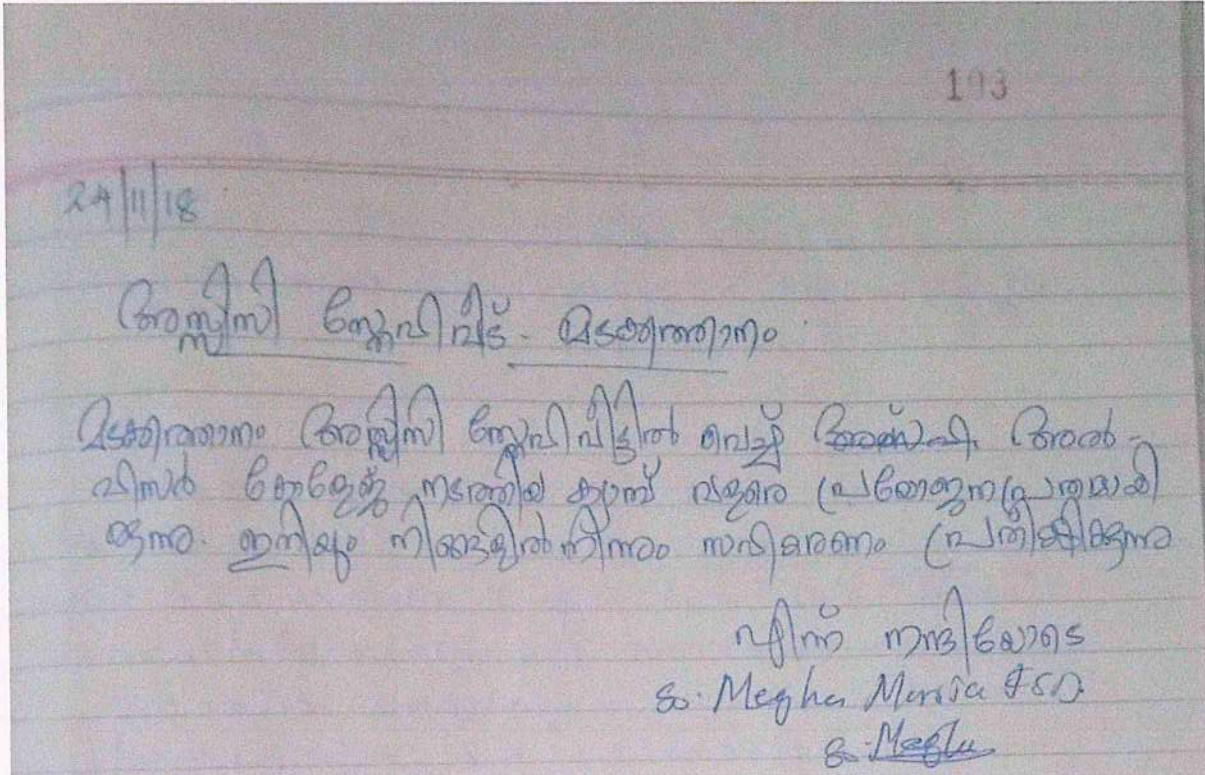 193
24/11/18
അസ്സീസി സ്നേഹവീട് - മടക്കത്താനം
മടക്കത്താനം അസ്സീസി സ്നേഹവീട്ടിൽ വെച്ച് അൽ-
കോളേജ് നടത്തിയ ക്യാമ്പ് വളരെ പ്രയോജനപ്രദമായി
രുന്നു. ഇനിയും നിങ്ങളിൽനിന്നും സഹകരണം പ്രതീക്ഷിക്കുന്നു
എന്ന് നന്ദിയോടെ
Sr. Megha Maria FSD.
Sr. Megha